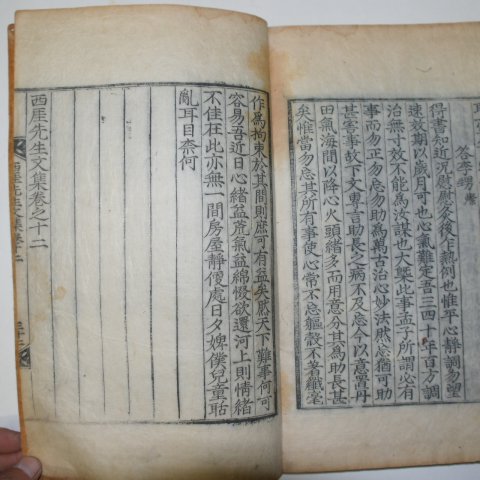 答李甥㷞
得書知近況慰慰灸後作熱例也惟平心靜調勿望
速效期以歲月可也心氣難定吾三四十年百方調
治無寸效不能爲汝謀也大槩此事孟子所謂必有
事而勿正勿忘勿助爲萬古治心妙法然忘猶可助
甚害事故下文專言助長之病不及忘今以意置丹
田氣海間以降心火頭緖多而用意分其爲助長甚
矣惟當勿忘其所有事使心常不忘軀殼不著纖毫
作爲拘束於其間則庶可有益矣然天下難事何可
容易吾近日心緖益荒氣益綿惙欲還河上則情緖
不佳在此亦無一間房屋靜便處日夕婢僕兒童聒
亂耳目奈何
西厓先生文集卷之十二
西厓先生文集卷十二